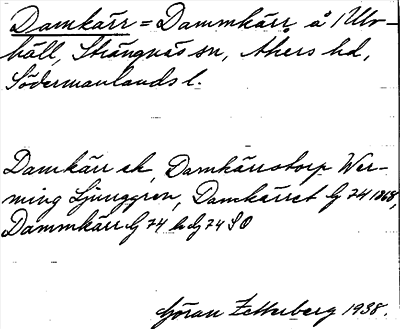 Damkärr = Dammkärr å 1 Ulv-
häll, Strängnäs sn, Åkers hd,
Södermanlands l.
Damkärr ek, Damkärrstorp Wer-
ming Ljunggren, Damkärret G 74 1868,
Dammkärr G 74 b Gj 74 SO
Göran Zetterberg 1938.